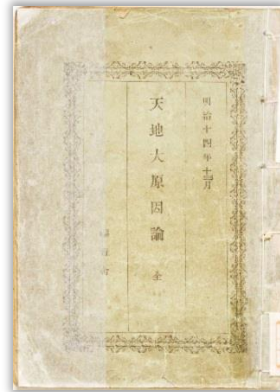 明治十四年十二月
天地大原因論 全